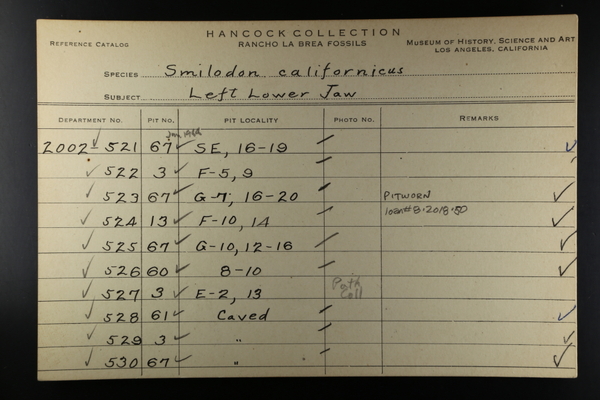 HANCOCK COLLECTION
REFERENCE CATALOG RANCHO LA BREA FOSSILS MUSEUM OF HISTORY, SCIENCE AND ART
LOS ANGELES, CALIFORNIA
SPECIES Smilodon californicus
SUBJECT Left Lower Jaw
DEPARTMENT NO. PIT NO. PIT LOCALITY PHOTO NO. REMARKS
2002- 521 67 SE, 16-19
522 3 F-5, 9
523 67 G-7, 16-20 PITWORN
524 13 F-10, 14 loan# 8.2018.50
525 67 G-10, 12-16
526 60 8-10
527 3 E-2, 13 Path Coll
528 61 Caved
529 3 "
530 67 "